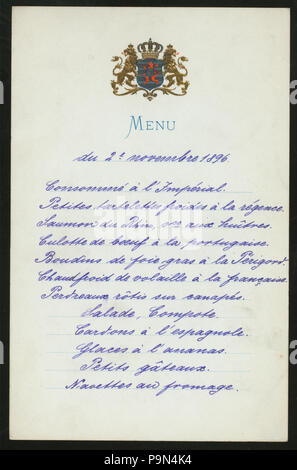 MENU
du 2d novembre 1896
Consommé à l'Impérial.
Petites tartelettes froides à la régence.
Saumon du Rhin, sce aux huîtres.
Culotte de bœuf à la portugaise.
Boudins de foie gras à la Périgord
Chaudfroid de volaille à la française
Perdreaux rôtis sur canapés.
Salade, Compote
Cardons à l'espagnole.
Glaces à l'ananas.
Petits gâteaux.
Navettes au fromage.
alamy stock photo
P9N4K4
www.alamy.com